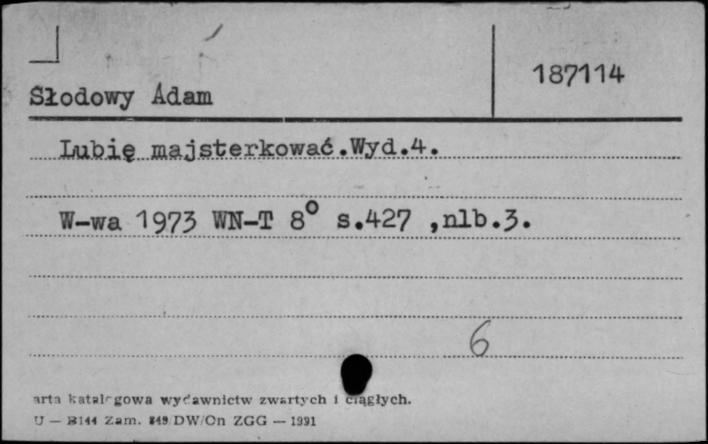 187114
Słodowy Adam
Lubię majsterkować.Wyd.4.
W-wa 1973 WN-T 8° s.427 ,nlb.3.
6
arta katalogowa wydawnictw zwartych i ciągłych.
U — B144 Zam. 849/DW/On ZGG — 1991